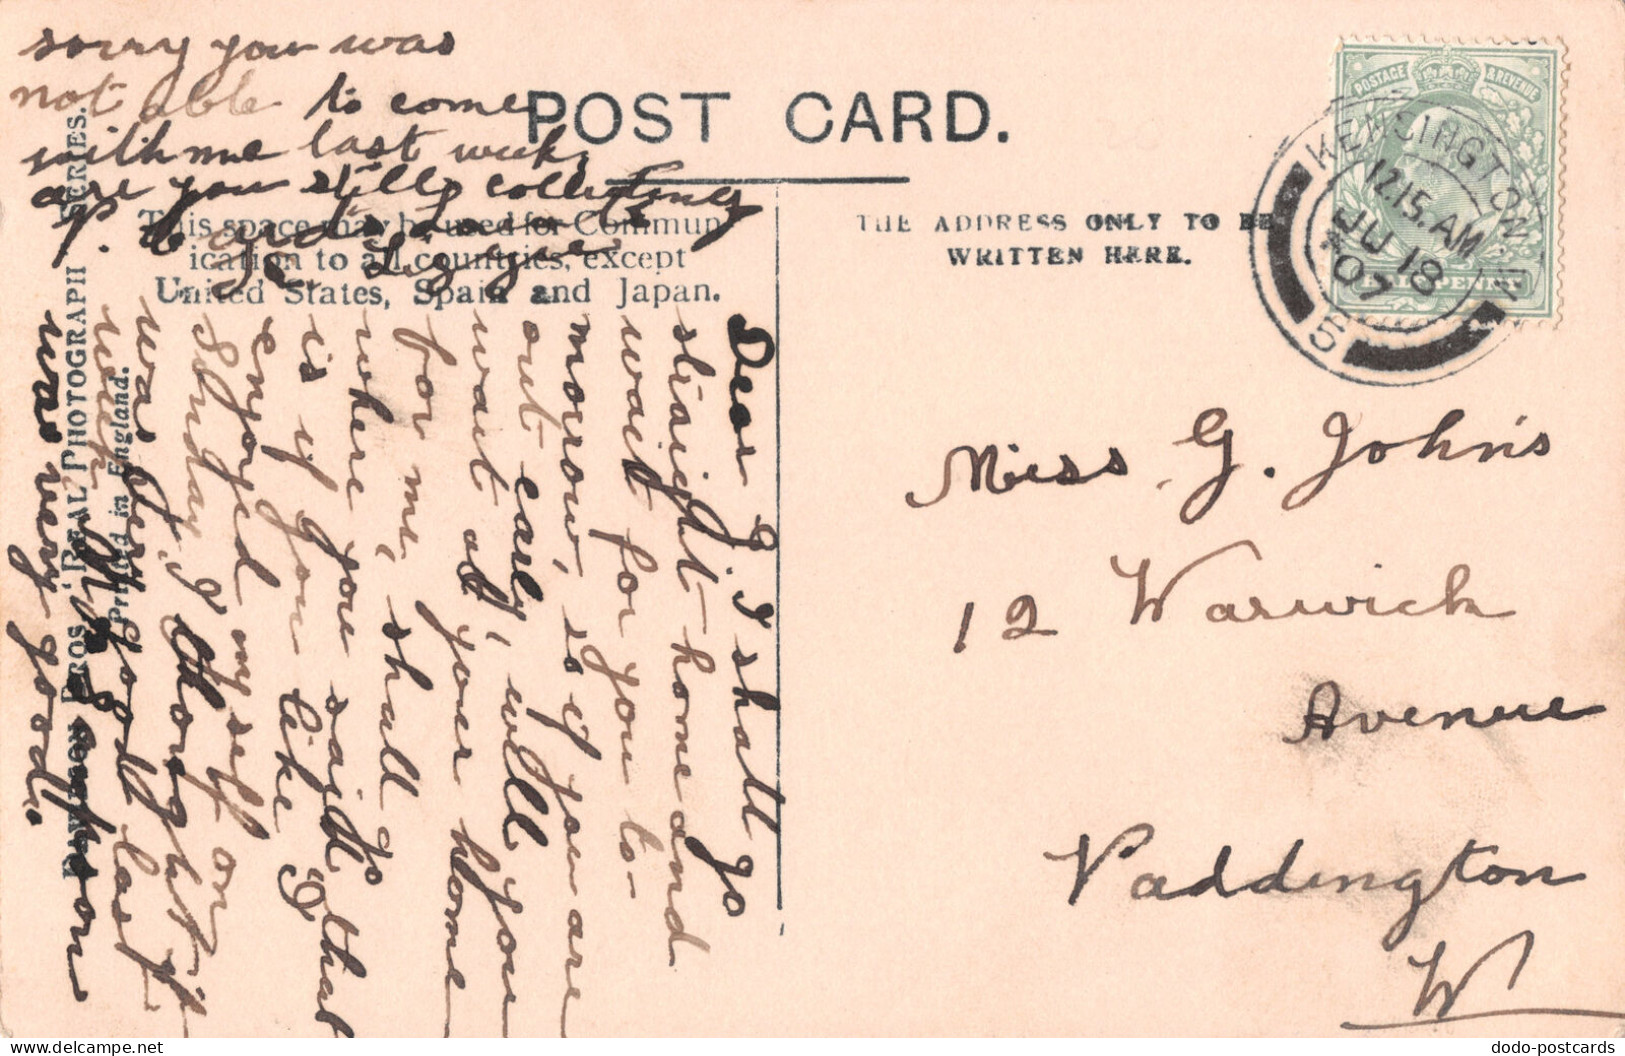 sorry you was
not able to come
with me last week,
are you still collecting
P. Cards.
Lizzie
POST CARD.
This space may be used for Commun
ication to all countries, except
United States, Spain and Japan.
THE ADDRESS ONLY TO BE
WRITTEN HERE.
POSTAGE & REVENUE
HALFPENNY
KENSINGTON W
12.15.AM
JU 18
07
S
Dear G. I shall go
straight home and
wait for you to-
morrow, so if you are
out early, will you
wait at your home
for me, shall go
where you said that
is if you like I
enjoyed my self on
Sunday, I thought it
was very good last
week.
was very good.
Miss G. Johns
12 Warwick
Avenue
Paddington
W
BROS. 'REAL PHOTOGRAPH' SERIES.
Printed in England.
dodo-postcards